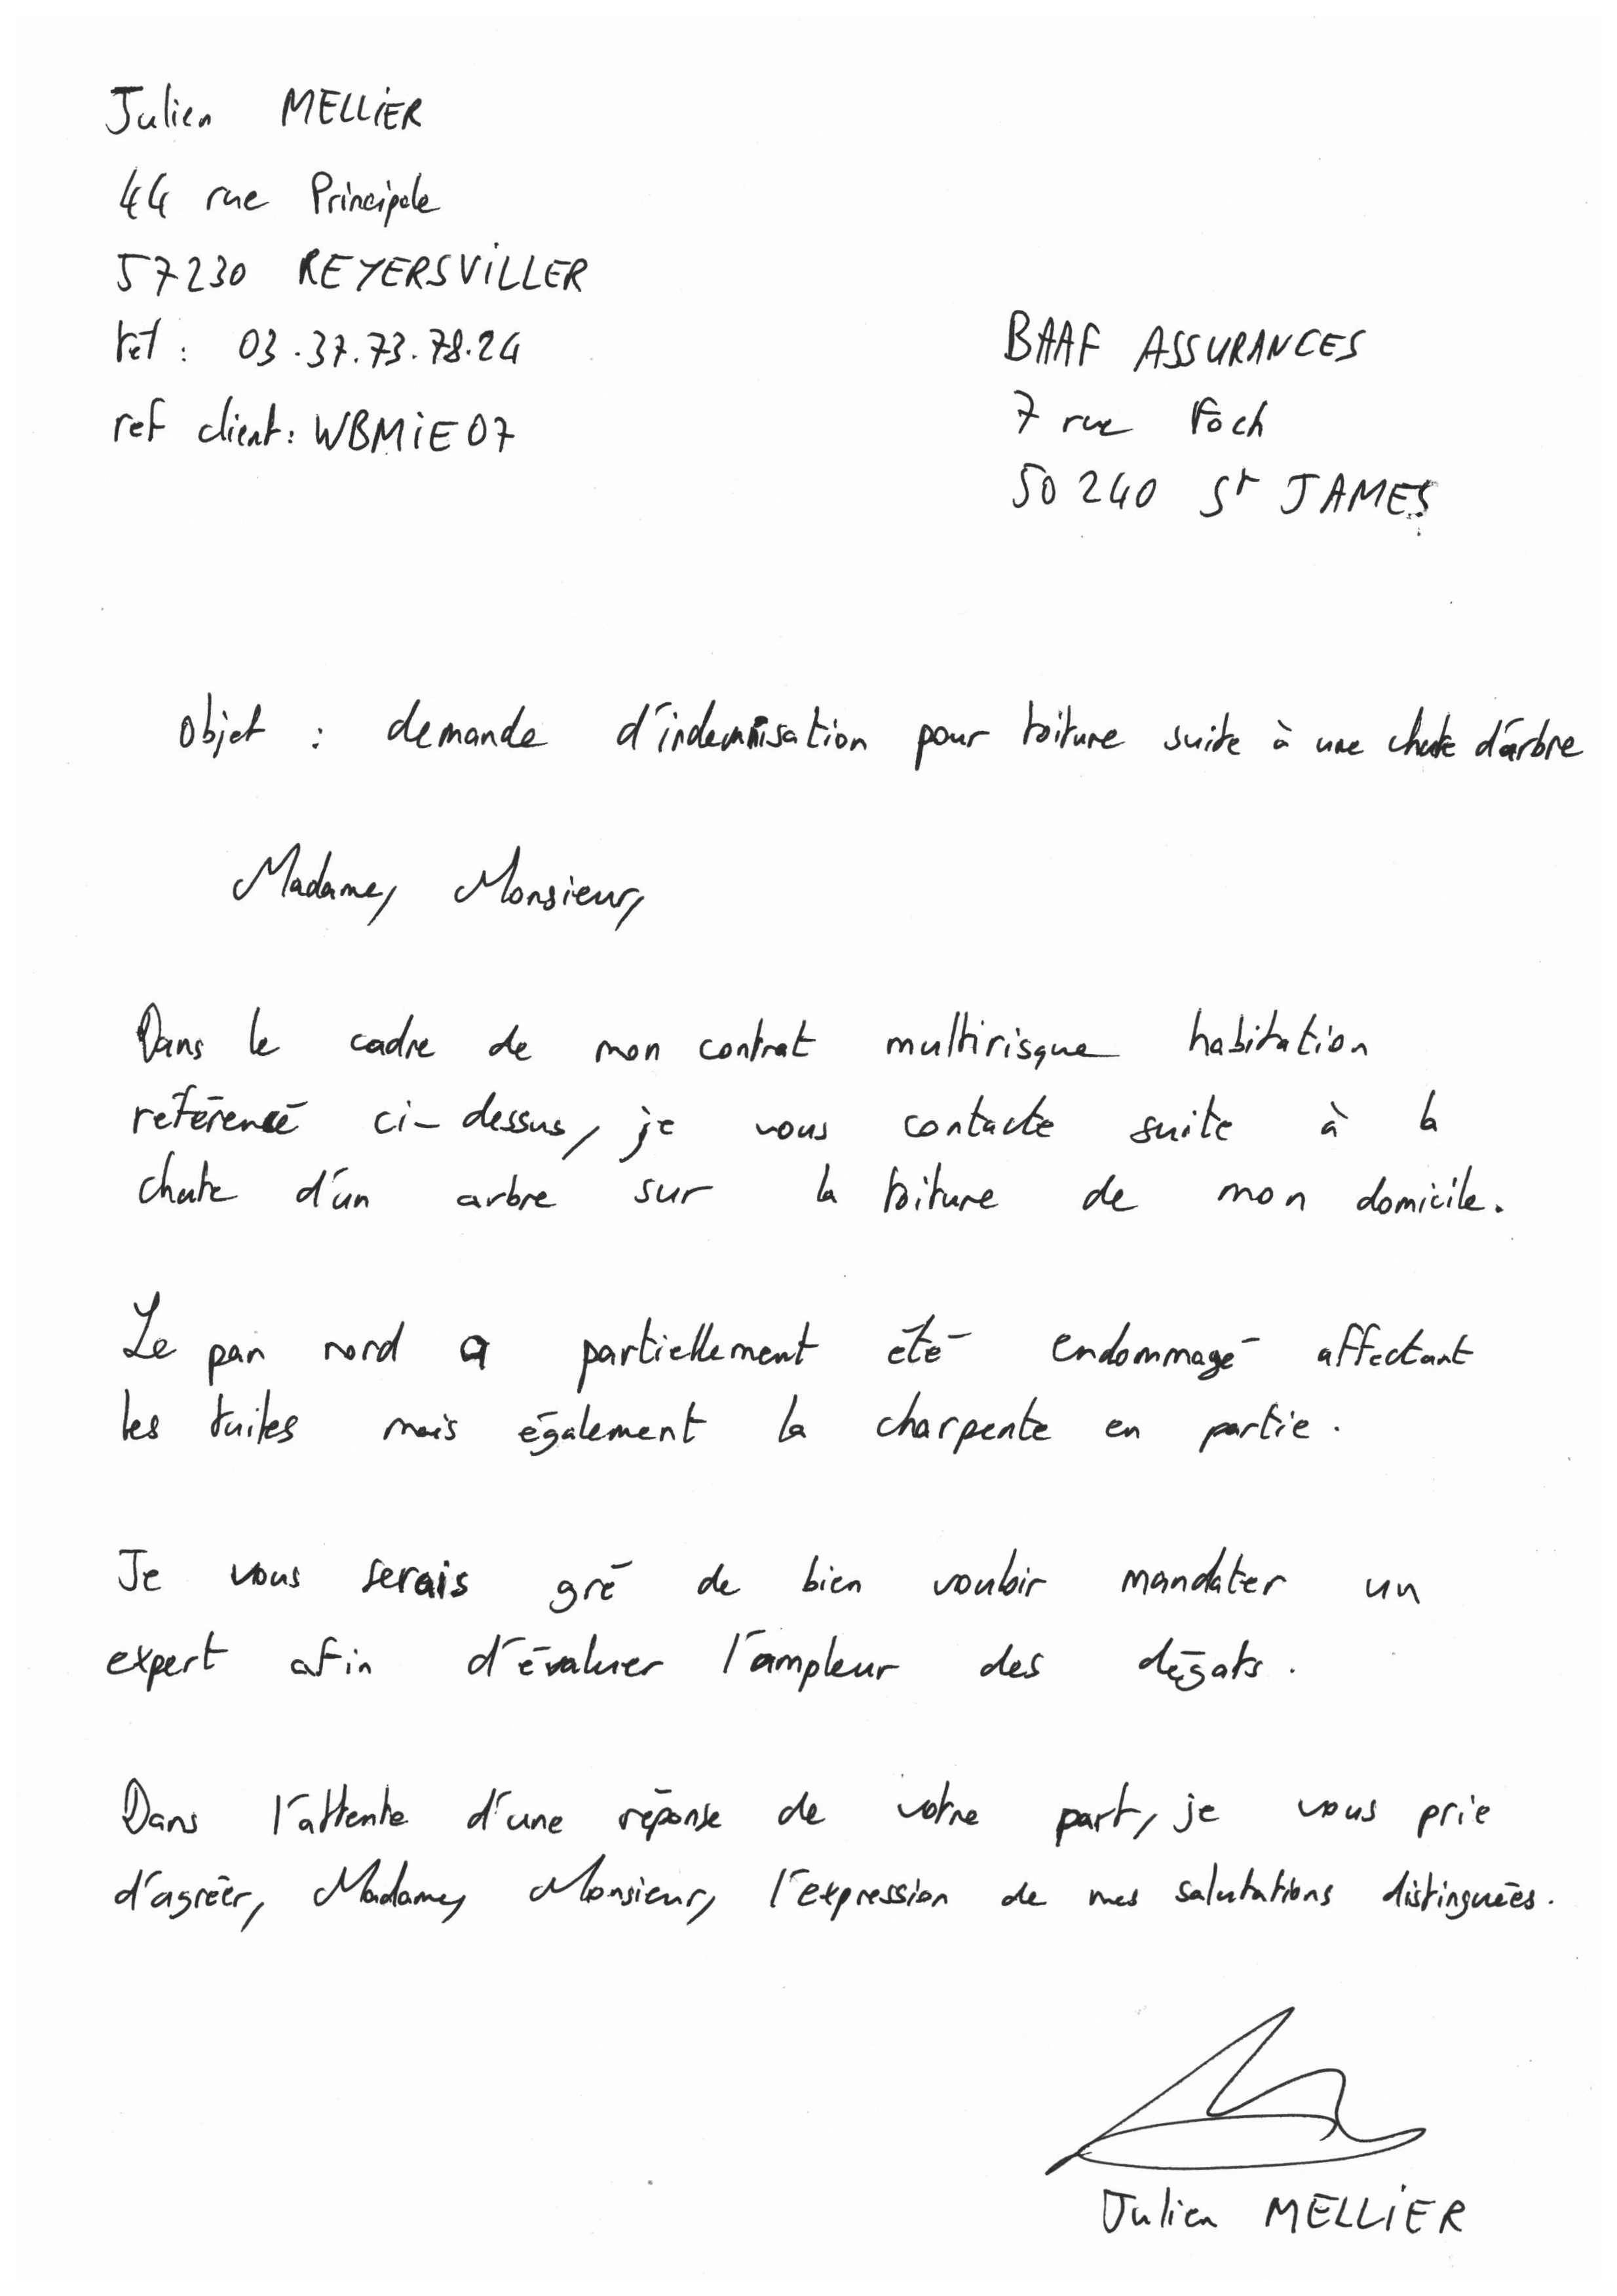 Julien MELLIER
44 rue Principale
57230 REYERSVILLER
tel : 03.37.73.78.24
ref client : WBMIE07
BAAF ASSURANCES
7 rue Foch
50 240 St JAMES
Objet : demande d'indemnisation pour toiture suite à une chute d'arbre
Madame, Monsieur,
Dans le cadre de mon contrat multirisque habitation
référencé ci-dessus, je vous contacte suite à la
chute d'un arbre sur la toiture de mon domicile.
Le pan nord a partiellement été endommagé affectant
les tuiles mais également la charpente en partie.
Je vous serais gré de bien vouloir mandater un
expert afin d'évaluer l'ampleur des dégats.
Dans l'attente d'une réponse de votre part, je vous prie
d'agréer, Madame, Monsieur, l'expression de mes salutations distinguées.
Julien MELLIER